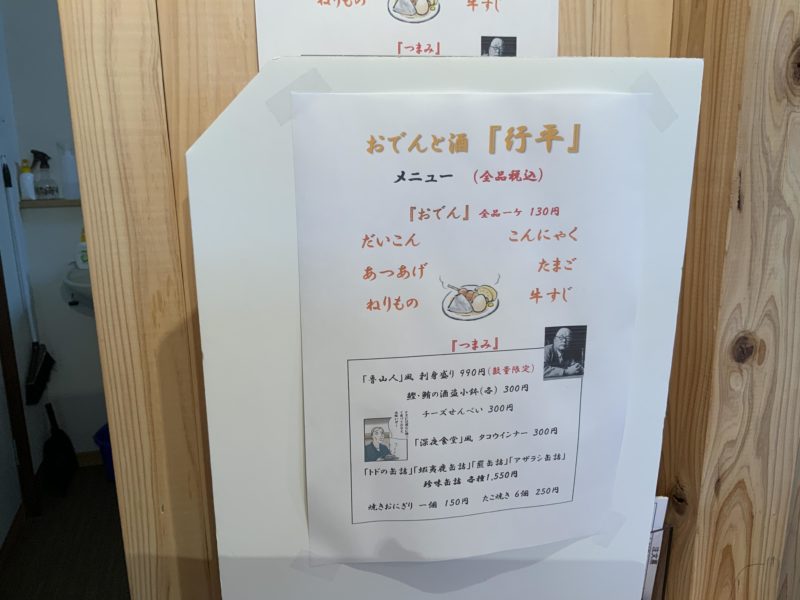 ねりもの
牛すじ
『つまみ』
おでんと酒『行平』
メニュー (全品税込)
『おでん』 全品一ケ 130円
だいこん
こんにゃく
あつあげ
たまご
ねりもの
牛すじ
『つまみ』
「魯山人」風 刺身盛り 990円(数量限定)
鰹・鮪の酒盗小鉢(各) 300円
チーズせんべい 300円
「深夜食堂」風 タコウインナー 300円
「トドの缶詰」「蝦夷鹿缶詰」「熊缶詰」「アザラシ缶詰」
珍味缶詰 各種1,550円
焼きおにぎり 一個 150円 たこ焼き 6個 250円